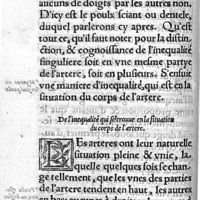 aucuns de doigts par les autres non.
D'icy est le pouls sciant ou dentelé,
duquel parlerons cy apres. Qu'est
tout ce, qu'il faut noter pour la distin-
ction, & cognoissance de l'inequalité
singuliere soit en vne mesme partye
de l'artere, soit en plusieurs. S'ensuit
vne maniere d'inequalité, qui est en la
situation du corps de l'artere.
De l'inequalité qui se trouue en la situation
du corps de l'artere.
LEs arteres ont leur naturelle
situation pleine & vnie, la-
quelle quelques fois se chan-
ge tellement, que les vnes des parties
de l'artere tendent en haut, les autres